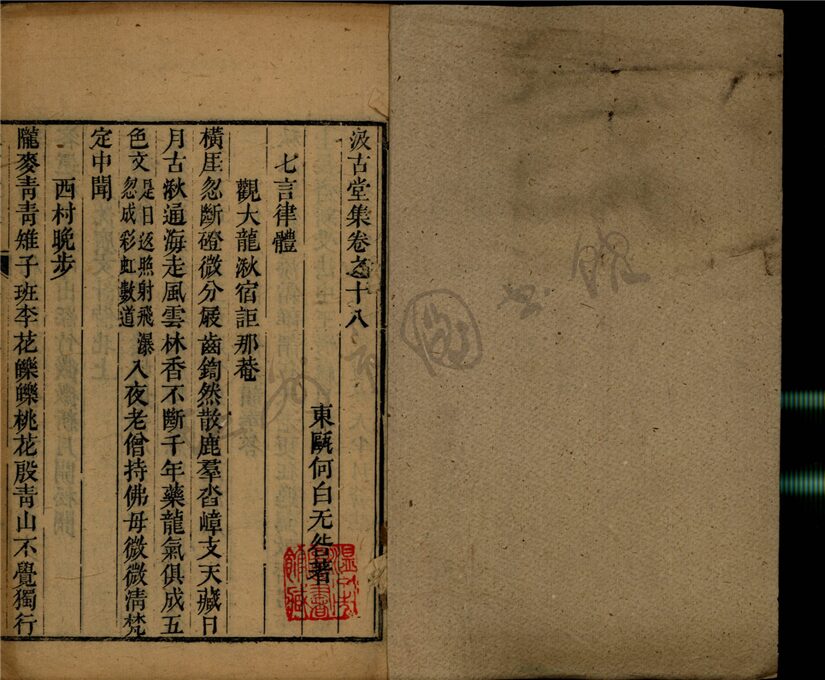 汲古堂集卷之十八
東甌何白无咎著
七言律體
觀大龍湫宿詎那菴
橫厓忽斷磴微分屐齒錡然散鹿羣沓嶂支天藏日
月古湫通海走風雲林香不斷千年藥龍氣俱成五
色文是日返照射飛瀑忽成彩虹數道入夜老僧持佛母微微清梵
定中聞
西村晚步
隴麥青青雉子班李花皪皪桃花殷青山不覺獨行